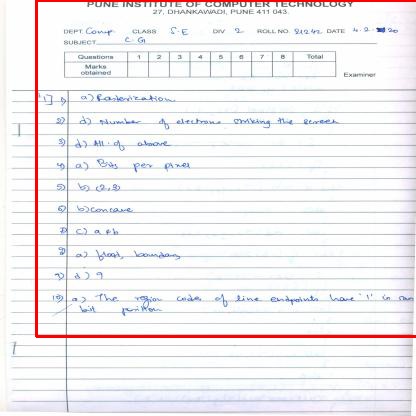 PUNE INSTITUTE OF COMPUTER TECHNOLOGY
27, DHANKAWADI, PUNE 411 043.
DEPT. Comp CLASS S.E DIV 2 ROLL NO. 21242 DATE 4.2.20
SUBJECT C.G
Questions 1 2 3 4 5 6 7 8 Total
Marks obtained
Examiner
1] 1) a) Rasterization
2) d) Number of electrons striking the screen
3) d) All of above
4) a) Bits per pixel
5) b) (2,2)
6) b) concave
7) c) a & b
8) a) flood, boundary
9) d) 9
10) a) The region codes of line endpoints have '1' in
bit position